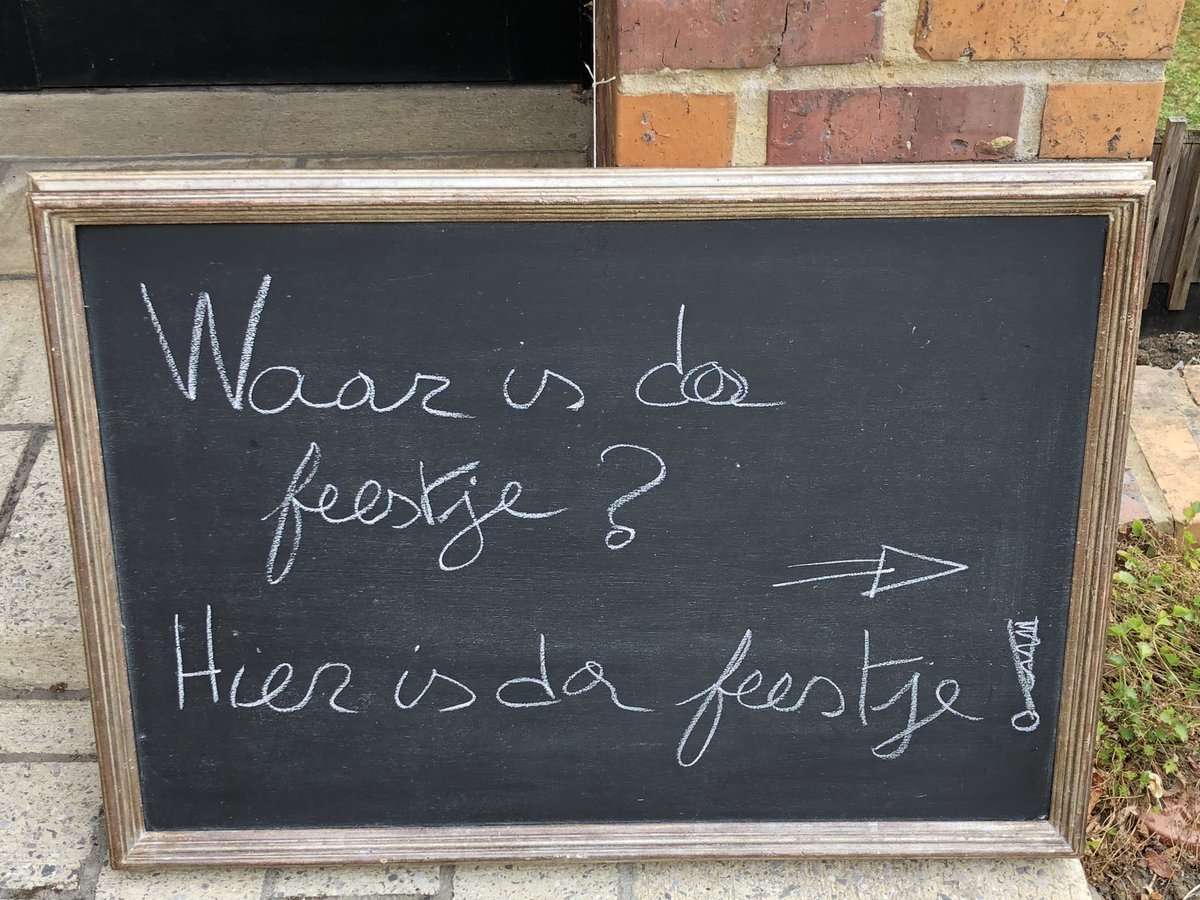 Waar is da
feestje?
Hier is da feestje!